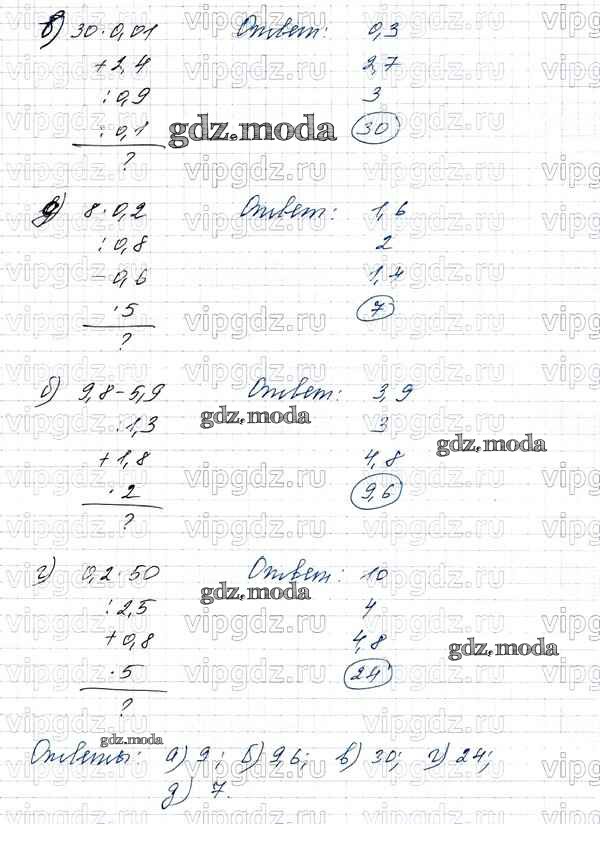 в) 30·0,01 Ответ: 0,3
+2,4 2,7
:0,9 3
:0,1 30
?
gdz.moda
д) 8·0,2 Ответ: 1,6
:0,8 2
-0,6 1,4
·5 7
?
б) 9,8-5,9 Ответ: 3,9
:1,3 3
gdz.moda
+1,8 4,8
gdz.moda
·2 9,6
?
г) 0,2·50 Ответ: 10
gdz.moda
:2,5 4
+0,8 4,8
gdz.moda
·5 24
?
gdz.moda
Ответы: а) 9; б) 9,6; в) 30; г) 24;
д) 7.
vipgdz.ru